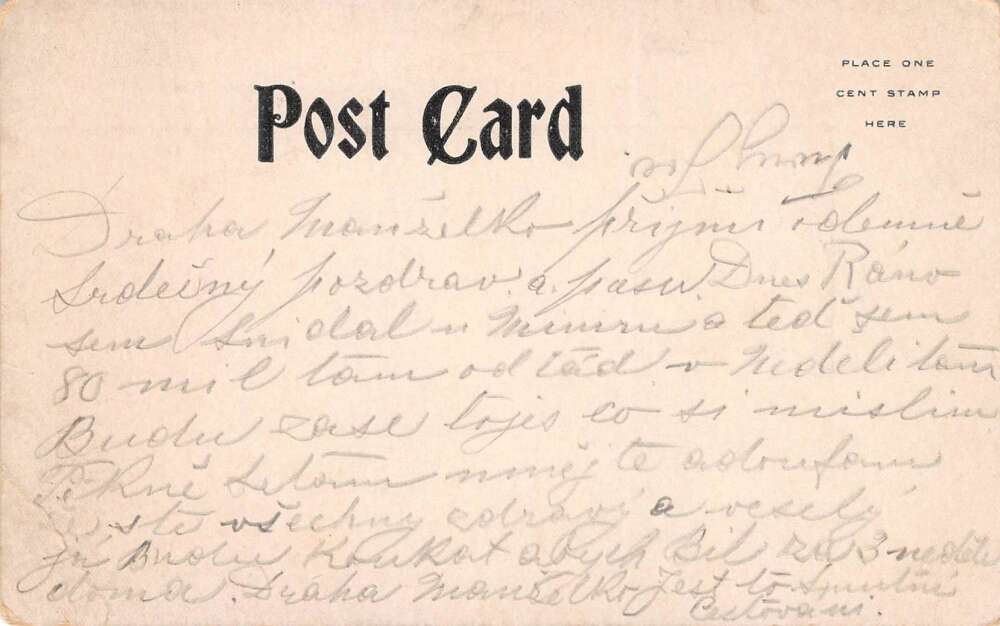 PLACE ONE
CENT STAMP
HERE
Post Card
Draha Manželko přijmi odemně
Srdečný pozdrav. a. pusu. Dnes Ráno
sem Snidal u Mimru a teď sem
80 mil tam odtád v Neděli tam
Budu zase tojes co si mislim
Pěkně se tam mněj te a doufam
ste všechny zdraví a veselý
já Budu Koukat abych Bil za 3 neděle
doma. Draha Manželko Jest to Smutni
Cestovani.